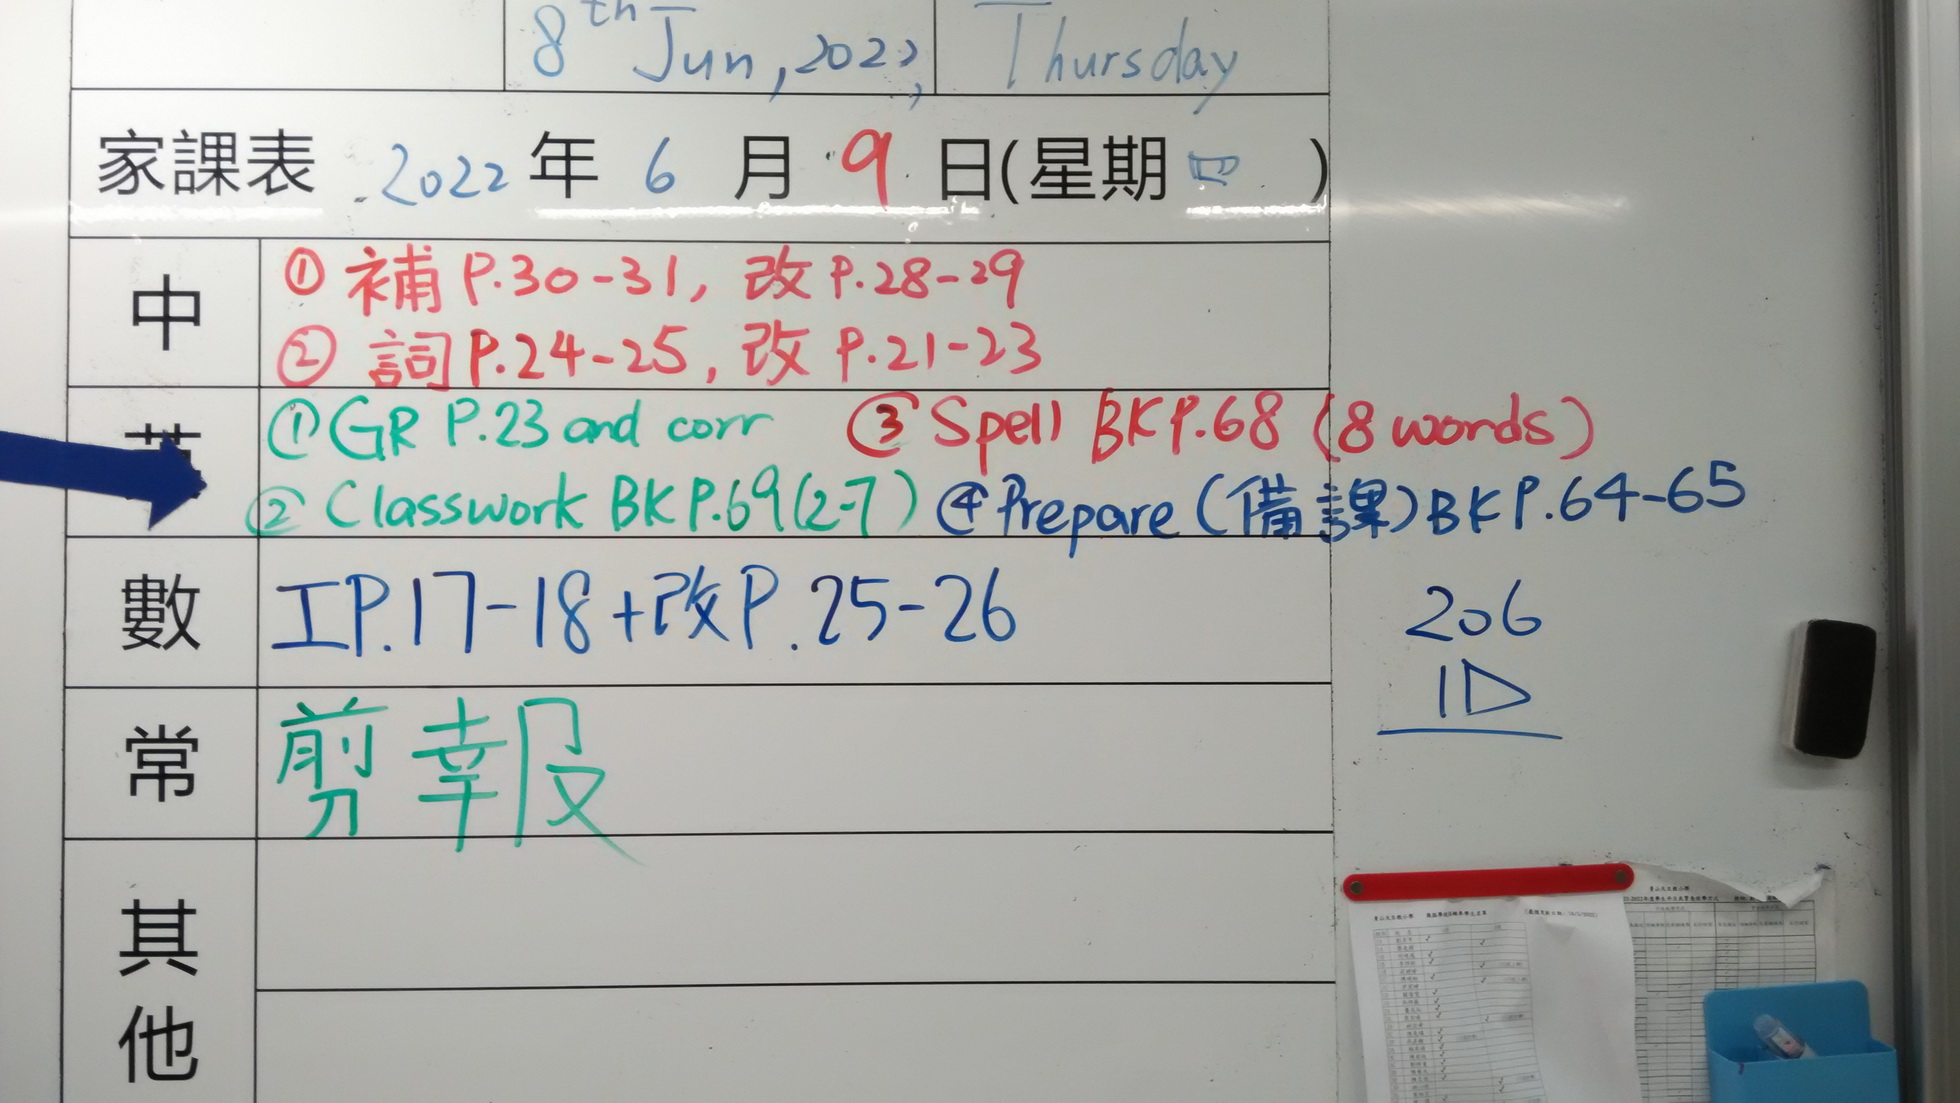 8th Jun, 2022, Thursday
家課表 2022 年 6 月 9 日(星期 四 )
中
① 補 P.30-31, 改 P.28-29
② 詞 P.24-25, 改 P.21-23
英
① GR P.23 and corr ③ Spell BK P.68 (8 words)
② Classwork BK P.69 (2-7) ④ Prepare (備課) BK P.64-65
數
工 P.17-18 + 改 P.25-26
206
1D
常
剪報
其他